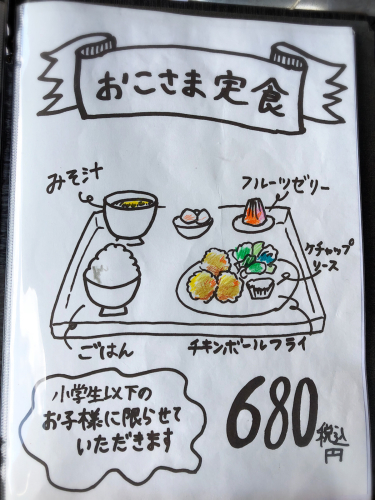 おこさま定食
みそ汁
フルーツゼリー
ケチャップ
ソース
ごはん
チキンボールフライ
小学生以下の
お子様に限らせて
いただきます
680税込円